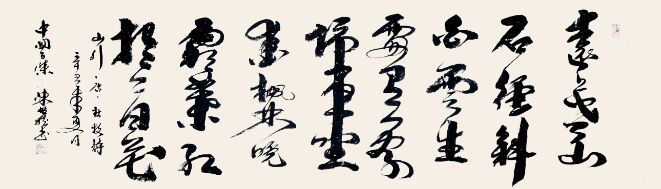 遠上寒山
石徑斜
白雲生
處有人家
停車坐
愛楓林晚
霜葉紅
於二月花
山行 唐 杜牧詩
辛卯年夏月
中國